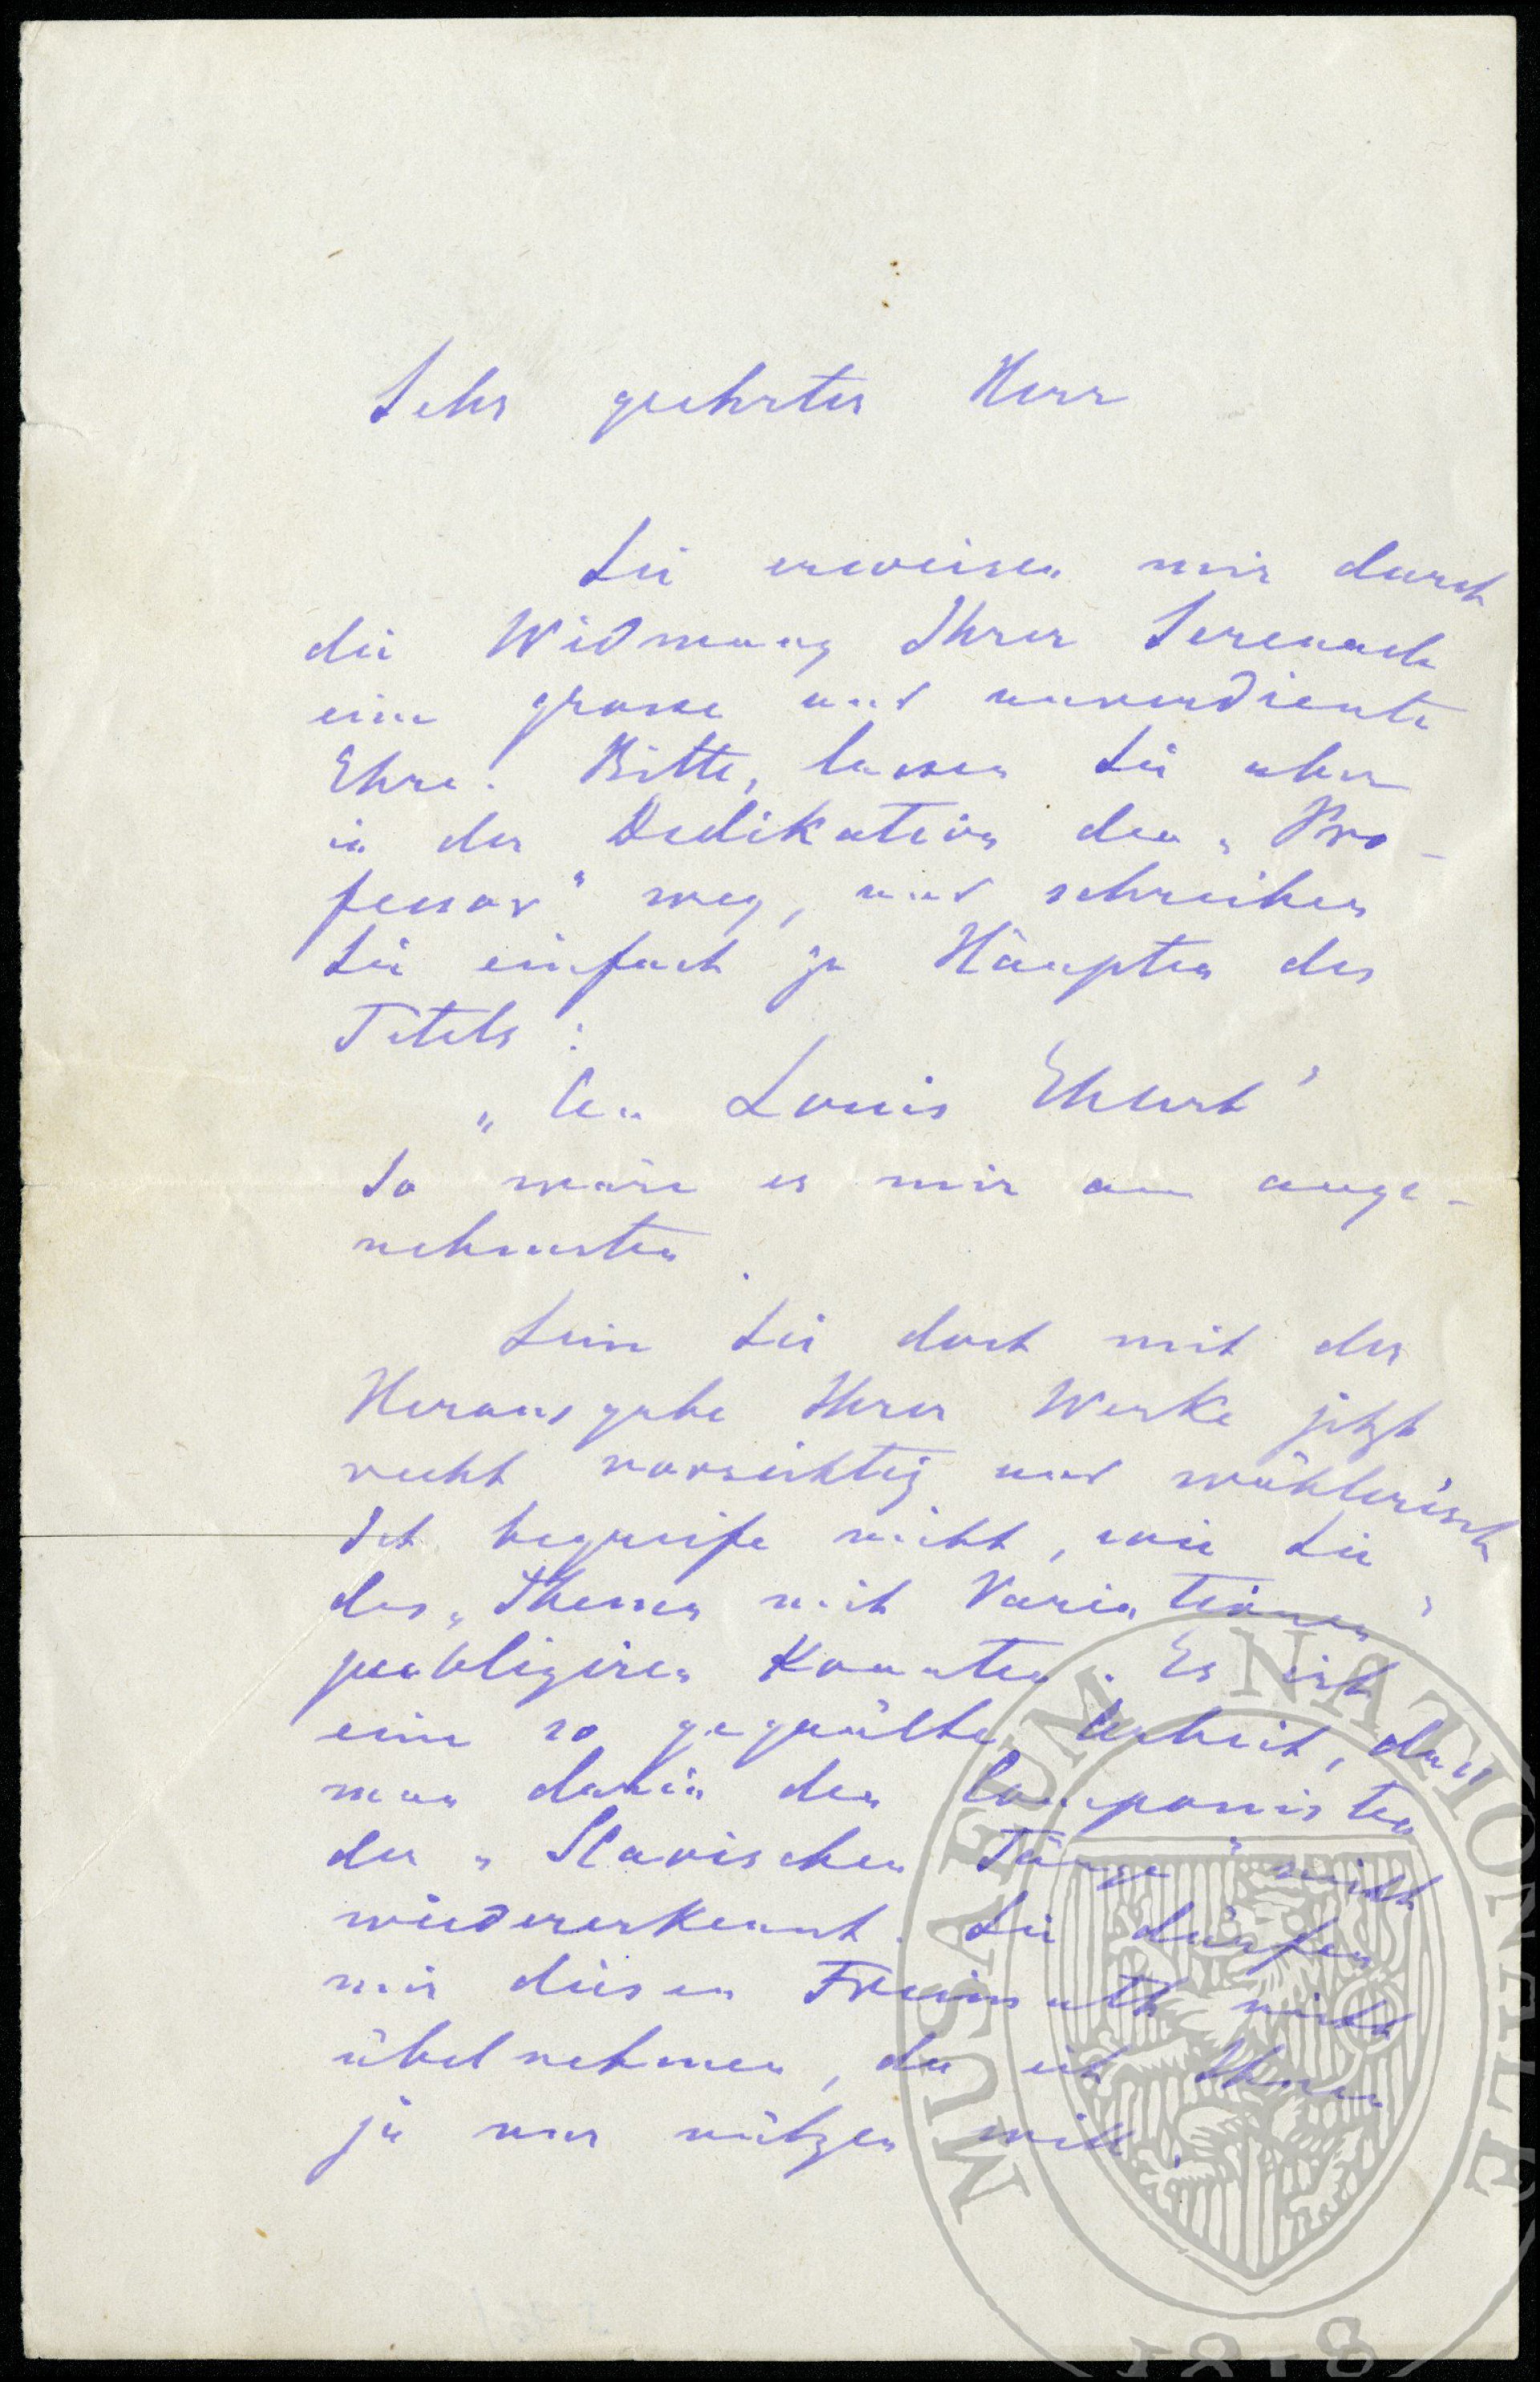 Sehr geehrter Herr
Sie erweisen mir durch
die Widmung Ihrer Serenade
eine grosse und unverdiente
Ehre. Bitte, lassen Sie aber
in der Dedikation den „Pro-
fessor" weg, und schreiben
Sie einfach zu Häupten des
Titels:
„An Louis Ehlert"
So wäre es mir am ange-
nehmsten.
Sein Sie doch mit der
Herausgabe Ihrer Werke jetzt
recht vorsichtig und wählerisch
Ich begreife nicht, wie Sie
das „Thema mit Variationen"
publiziren konnten. Es ist
eine so gequälte Arbeit, dass
man darin den Componisten
der „Slavischen Tänze" nicht
wiedererkennt. Sie dürfen
mir diesen Freimuth nicht
übel nehmen, da ich Ihnen
ja nur nützen will.
MUSAEUM NATIONALE
1818